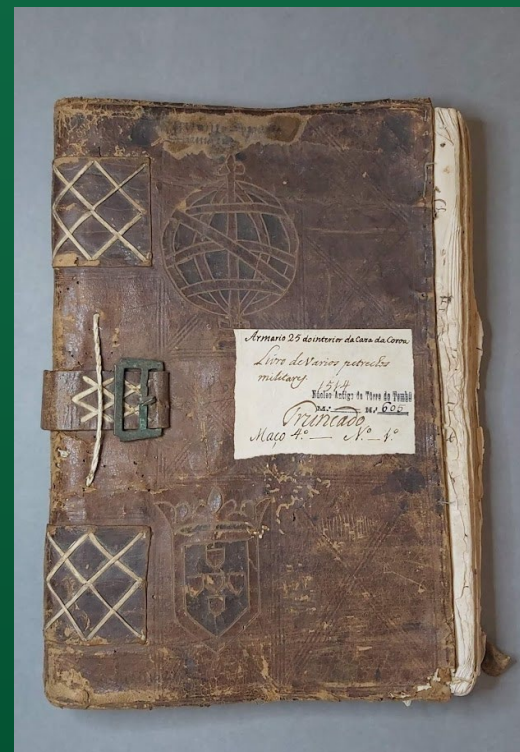 Armario 25 do interior da Caza da Coroa
Livro de Varios petrechos
militares
1514
Núcleo Antigo da Tôrre do Tombo
N.º 606
Truncado
Maço 4.º — N.º 1.º